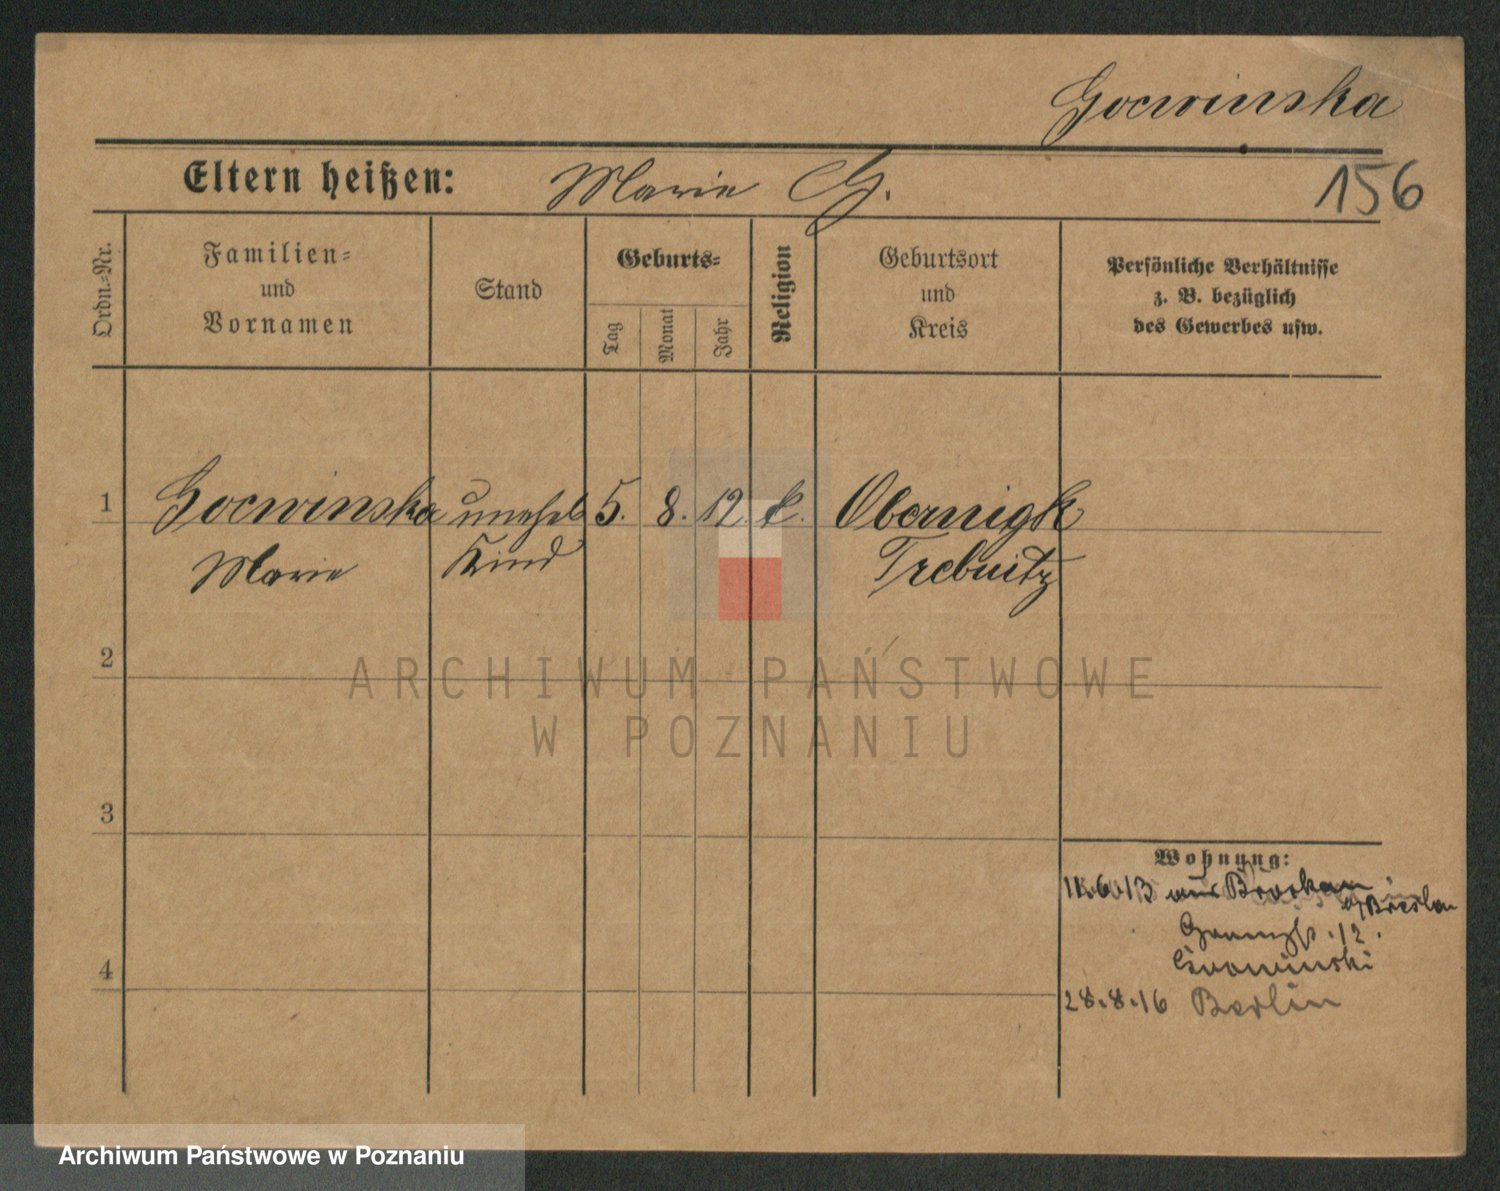 Gocwinska
Eltern heißen: Marie G.
156
Ordn.-Nr.
Familien-
und
Vornamen
Stand
Geburts-
Tag
Monat
Jahr
Religion
Geburtsort
und
Kreis
Persönliche Verhältnisse
z. B. bezüglich
des Gewerbes usw.
1 Gocwinska unehel 5. 8. 12. k. Obernigk
Marie Kind Trebnitz
2
ARCHIWUM PAŃSTWOWE
W POZNANIU
3
4
Wohnung:
11.6.13 aus Brockau
b/Breslau
12.
28.8.16 Berlin
Archiwum Państwowe w Poznaniu